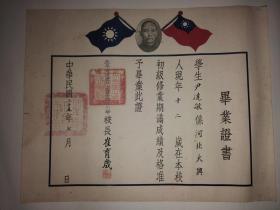 畢業證書
學生尹遠敏係河北大興
人現年十二歲在本校
初級修業期滿成績及格准
予畢業此證
校長崔育歲
中華民國三十五年七月 日